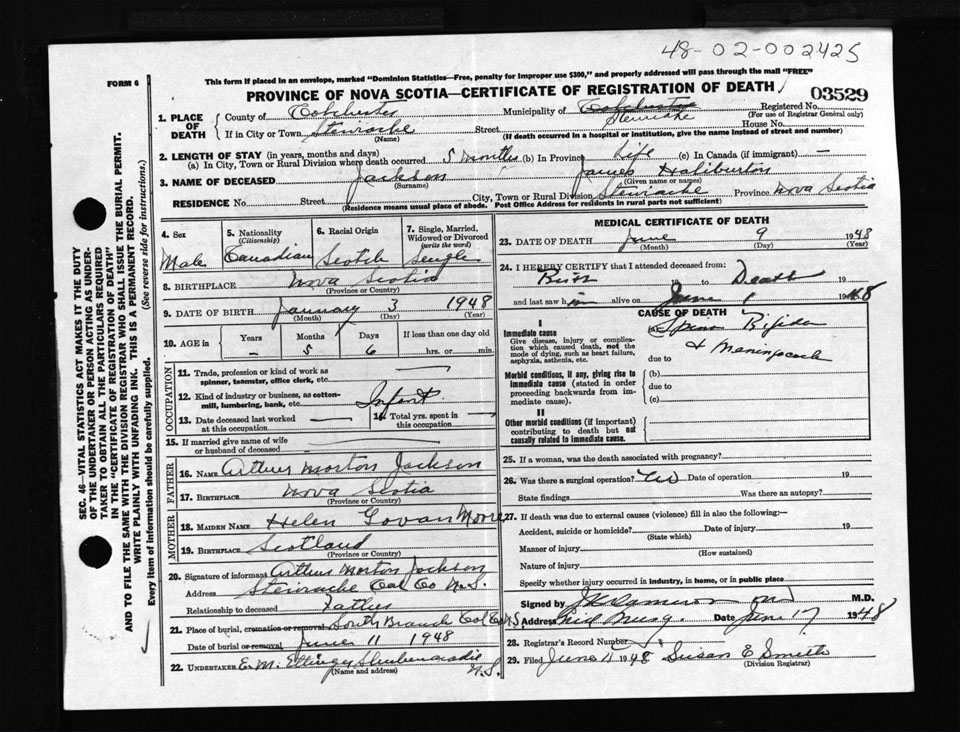 48-02-002425
FORM 6
This form if placed in an envelope, marked "Dominion Statistics—Free, penalty for improper use $300," and properly addressed will pass through the mail "FREE"
PROVINCE OF NOVA SCOTIA—CERTIFICATE OF REGISTRATION OF DEATH
03529
1. PLACE OF DEATH
County of Colchester Municipality of Colchester Registered No.
Stewiacke (For use of Registrar General only)
If in City or Town Stewiacke Street House No.
(Name) (If death occurred in a hospital or institution, give the name instead of street and number)
2. LENGTH OF STAY (in years, months and days)
(a) In City, Town or Rural Division where death occurred 5 months (b) In Province Life (c) In Canada (if immigrant) —
3. NAME OF DECEASED Jackson James Haliburton
(Surname) (Given name or names)
RESIDENCE No. Street City, Town or Rural Division Stewiacke Province Nova Scotia
(Residence means usual place of abode. Post Office Address for residents in rural parts not sufficient)
4. Sex
Male
5. Nationality
(Citizenship)
Canadian
6. Racial Origin
Scotch
7. Single, Married, Widowed or Divorced
(write the word)
Single
8. BIRTHPLACE Nova Scotia
(Province or Country)
9. DATE OF BIRTH January 3 1948
(Month) (Day) (Year)
10. AGE in
Years Months Days If less than one day old
— 5 6 hrs. or min.
OCCUPATION
11. Trade, profession or kind of work as
spinner, teamster, office clerk, etc.
12. Kind of industry or business, as cotton-
mill, lumbering, bank, etc. Infant
13. Date deceased last worked
at this occupation
14. Total yrs. spent in
this occupation
15. If married give name of wife
or husband of deceased
FATHER
16. NAME Arthur Morton Jackson
17. BIRTHPLACE Nova Scotia
(Province or Country)
MOTHER
18. MAIDEN NAME Helen Govan Moore
19. BIRTHPLACE Scotland
(Province or Country)
20. Signature of informant Arthur Morton Jackson
Address Stewiacke Col Co N.S.
Relationship to deceased Father
21. Place of burial, cremation or removal South Branch Col Co N.S.
Date of burial or removal June 11 1948
22. UNDERTAKER E. M. Shubenacadie
(Name and address) N.S.
MEDICAL CERTIFICATE OF DEATH
23. DATE OF DEATH June 9 1948
(Month) (Day) (Year)
24. I HEREBY CERTIFY that I attended deceased from:
Birth to Death 19
and last saw him alive on June 1 1948
CAUSE OF DEATH
I
Immediate cause
Give disease, injury or complica-
tion which caused death, not the
mode of dying, such as heart failure,
asphyxia, asthenia, etc.
(a) Spina Bifida
& Meningocoele
due to
Morbid conditions, if any, giving rise to
immediate cause (stated in order
proceeding backwards from im-
mediate cause).
(b)
due to
(c)
II
Other morbid conditions (if important)
contributing to death but not
causally related to immediate cause.
25. If a woman, was the death associated with pregnancy?
26. Was there a surgical operation? No Date of operation 19
State findings Was there an autopsy?
27. If death was due to external causes (violence) fill in also the following:—
Accident, suicide or homicide? Date of injury 19
(State which)
Manner of injury
(How sustained)
Nature of injury
Specify whether injured in industry, in home, or in public place
Signed by Cameron M.D.
Address Date June 17 1948
28. Registrar's Record Number
29. Filed June 11 1948 Susan E Smith
(Division Registrar)
SEC. 46—VITAL STATISTICS ACT MAKES IT THE DUTY
OF THE UNDERTAKER OR PERSON ACTING AS UNDER-
TAKER TO OBTAIN ALL THE PARTICULARS REQUIRED
IN THE "CERTIFICATE OF REGISTRATION OF DEATH"
AND TO FILE THE SAME WITH THE DIVISION REGISTRAR WHO SHALL ISSUE THE BURIAL PERMIT.
WRITE PLAINLY WITH UNFADING INK. THIS IS A PERMANENT RECORD.
Every item of information should be carefully supplied. (See reverse side for instructions.)